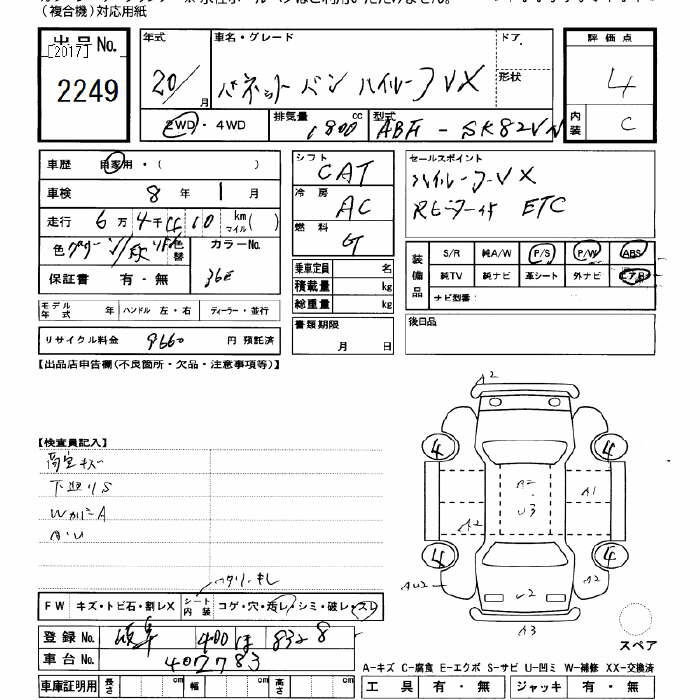 （複合機）対応用紙
出品No.
[2017]
2249
年式
20/
月
車名・グレード
バネットバン ハイルーフVX
ドア
形状
評価点
4
内装
C
2WD・4WD
排気量
1800
cc
型式
ABF-SK82VN
車歴
自家用・(
)
車検
8 年 1 月
走行
6万4千 10
km
マイル( )
色
色替
カラーNo.
36E
保証書 有・無
モデル年式
年
ハンドル 左・右
ディーラー・並行
リサイクル料金
9660
円 預託済
シフト
CAT
冷房
AC
燃料
G
乗車定員
名
積載量
kg
総重量
kg
書類期限
月 日
セールスポイント
ハイルーフVX
ETC
装備品
S/R
純A/W
P/S
P/W
ABS
純TV
純ナビ
革シート
外ナビ
エアB
ナビ型番：
後日品
【出品店申告欄(不良箇所・欠品・注意事項等)】
【検査員記入】
荷室キズ
下廻りS
WカバーA
A・U
A2
4
4
A2
U3
A1
A2
4
4
AU2
U2
A2
A3
スペア
FW
キズ・トビ石・割レX
シート内装
コゲ・穴・汚レ・シミ・破レ・スレ
登録No.
岐阜 400 ほ 8328
車台No.
402783
車庫証明用
長さ
cm
幅
cm
高さ
cm
A-キズ C-腐食 E-エクボ S-サビ U-凹ミ W-補修 XX-交換済
工具 有・無
ジャッキ 有・無